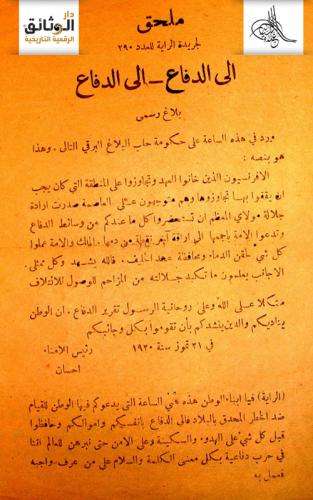 دار
الوثائق
الرقمية التاريخية
ملحق
لجريدة الراية للعدد ٢٩٠
الى الدفاع – الى الدفاع
بلاغ رسمي
ورد في هذه الساعة على حكومة حلب البلاغ البرقي التالي . وهذا
هو بنصه :
الافرنسيون الذين خانوا العهد وتجاوزوا على المنطقة التي كان يجب
ان يقفوا بها تجاوزوها وهم متوجهون على العاصمة صدرت ارادة
جلالة مولاي المعظم ان تستحضروا كل ما عندكم من وسائط الدفاع
وتدعوا الامة باجمعها الى اراقة آخر نقطة من دمها . الملك والامة عملوا
كل شيء لحقن الدماء ومحافظة عهد الحليف . فالله يشهد وكل ممثلي
الاجانب يعلمون ما تكبد جلالته من المزاحم للوصول للائتلاف
متكلا على الله وعلى روحانية الرسول تقرير الدفاع . ان الوطن
يناديكم والدين ينشدكم بأن تقوموا بكل واجباتكم
في ٢١ تموز سنة ١٩٢٠ رئيس الامناء
احسان
(الراية) فيا ابناء الوطن هذه هي الساعة التي يدعوكم فيها الوطن للقيام
ضد الخطر المحدق بالبلاد فالى الدفاع بانفسكم واموالكم وحافظوا
قبل كل شيء على الهدوء والسكينة وعلى الامن حتى نبرهن للعالم اننا
في حرب دفاعية بكل معنى الكلمة والسلام على من عرف واجبه
فعمل به